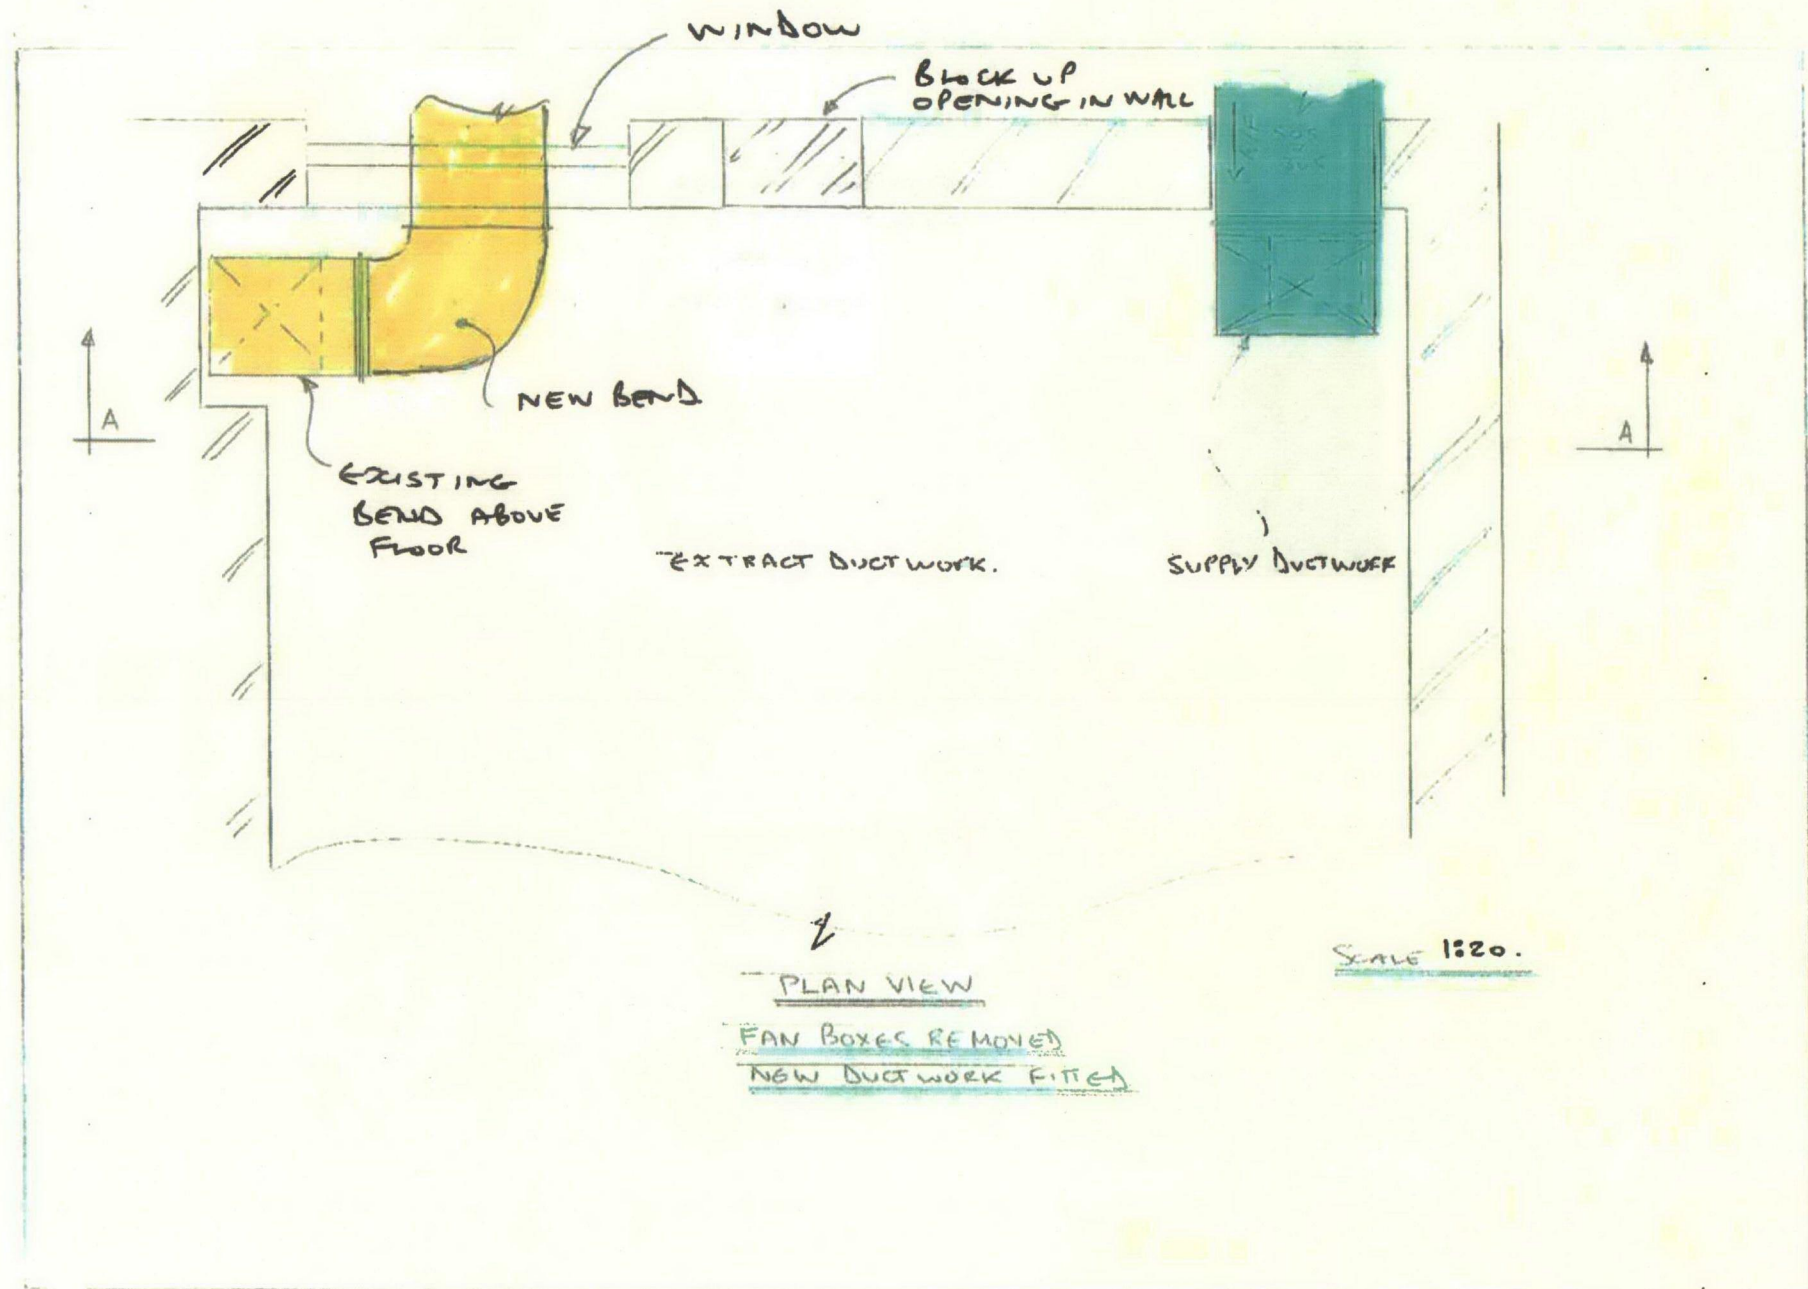 WINDOW
BLOCK UP
OPENING IN WALL
NEW BEND
A
A
EXISTING
BEND ABOVE
FLOOR
EXTRACT DUCTWORK.
SUPPLY DUCTWORK
SCALE 1:20.
PLAN VIEW
FAN BOXES REMOVED
NEW DUCTWORK FITTED